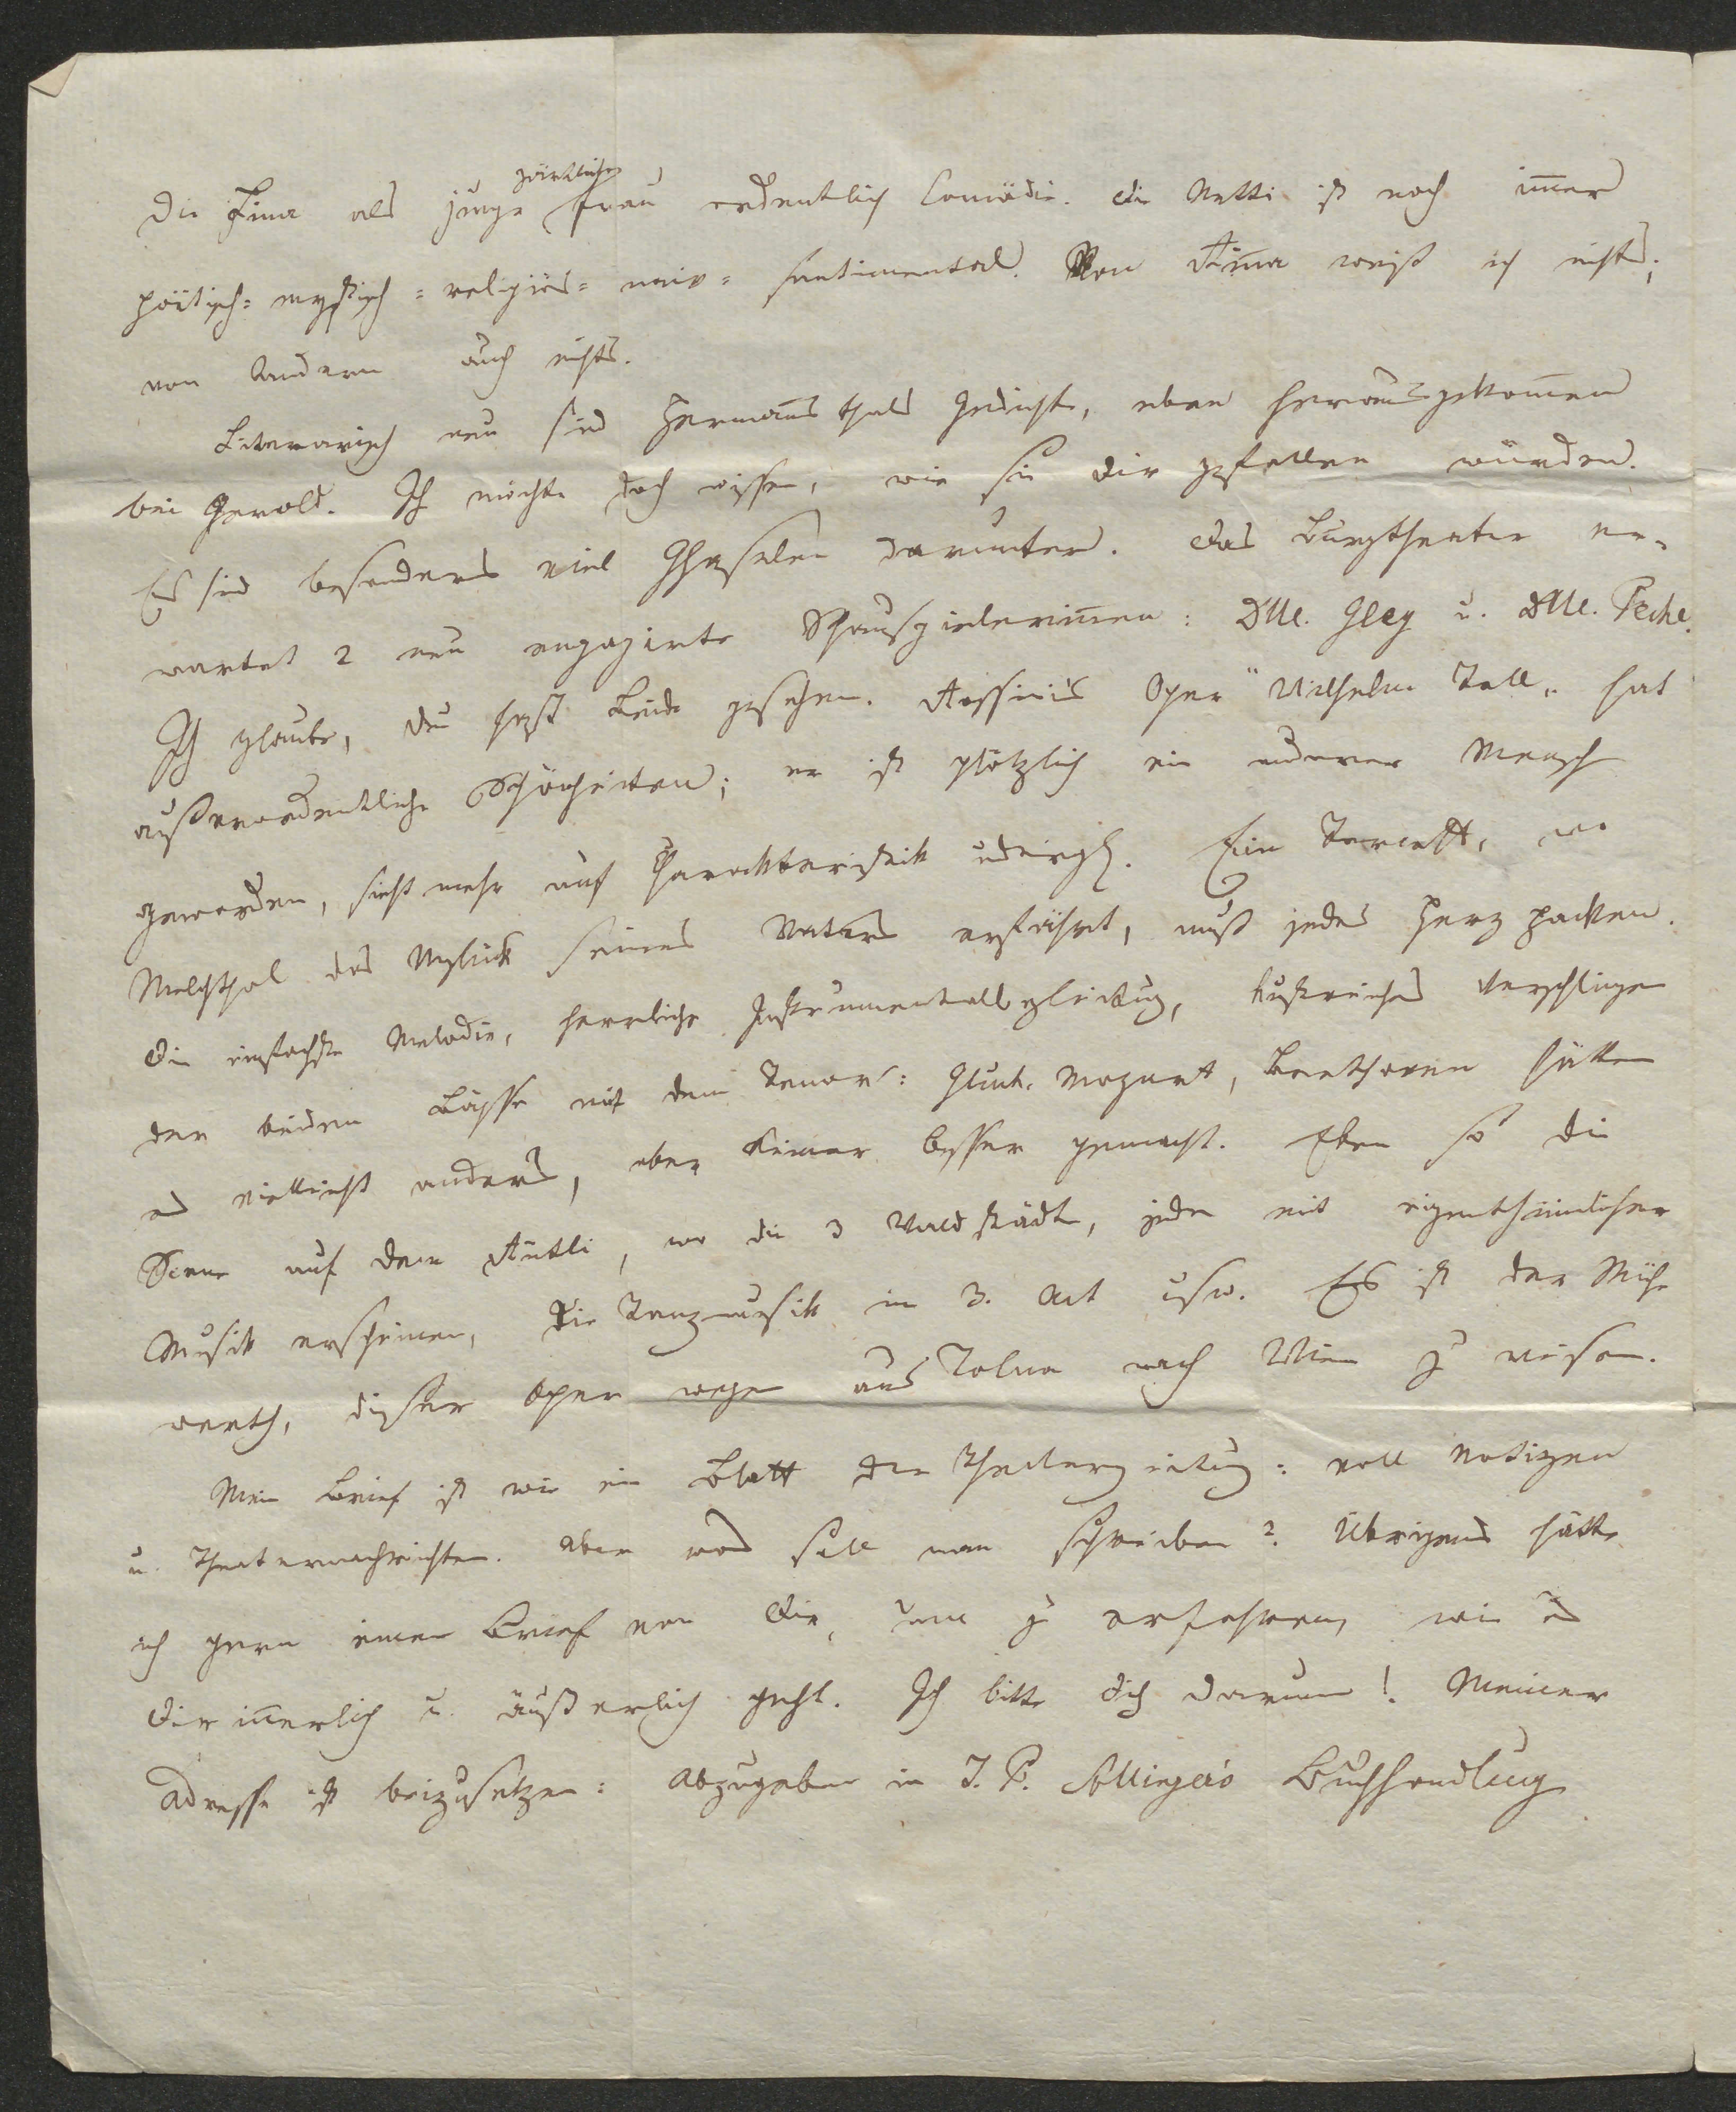 zärtliche
Die Fina als junge Frau ordentlich Comödie. Die Netti ist noch im̅er
poëtisch= mystisch= religiös= naiv= sentimental. Von Nina weiß ich nichts;
von Andern auch nichts.
Literarisch neu sind Herman̅sthals Gedichte, eben herausgekom̅en
bei Gerold. Ich möchte doch wissen, wie sie dir gefallen würden.
Es sind besonders viel Ghaselen darunter. Das Burgtheater er-
wartet 2 neu engagirte Schauspielerin̅en: Dlle. Gley u. Dlle. Peche.
Ich glaube, du hast Beide gesehen. Rossini's Oper "Wilhelm Tell" hat
außerordentliche Schönheiten; er ist plötzlich ein anderer Mensch
geworden, sieht mehr auf Charakteristik udergl. Ein Terzett, wo
Melchthal das Unglück seines Vaters erfährt, muß jedes Herz packen.
Die einfachste Melodie, herrliche Instrumentalbegleitung, kunstreiches Verschlingen
der beiden Bässe mit dem Tenor: Gluck, Mozart, Beethoven hätten
es vielleicht anders, aber keiner besser gemacht. Eben so die
Scene auf dem Rütli, wo die 3 Waldstädte, jede mit eigenthümlicher
Musik erscheinen, die Tanzmusik im 3. Akt usw. Es ist der Mühe
werth, dieser Oper wegen aus Tolna nach Wien zu reisen.
Mein Brief ist wie ein Blatt der Theaterzeitung: voll Notizen
u. Theaternachrichten. Aber was soll man schreiben? Übrigens hätte
ich gern einen Brief von Dir, um zu erfahren, wie es
Dir in̅erlich u. äußerlich geht. Ich bitte dich darum! Meiner
Adresse ist beizusetzen: Abzugeben in J. P. Sollinger's Buchhandlung